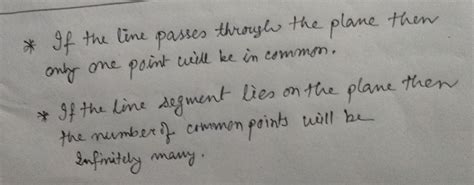 * If the line passes through the plane then
only one point will be in common.
* If the line segment lies on the plane then
the number of common points will be
Infinitely many.